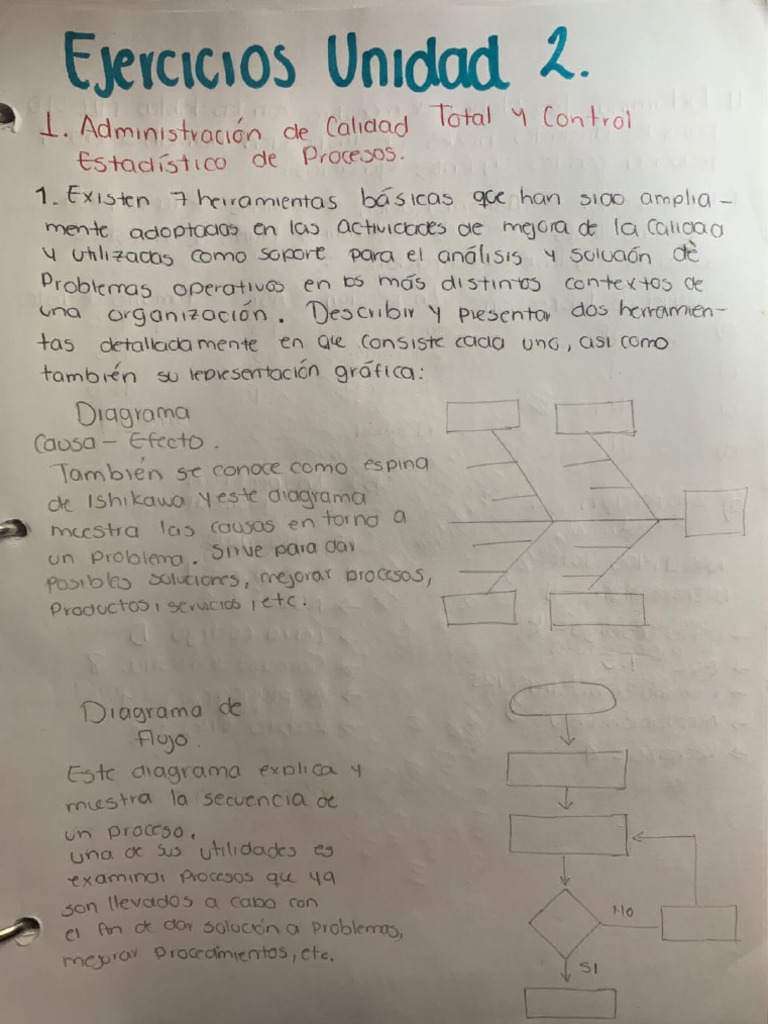 Ejercicios Unidad 2.
1. Administración de Calidad Total y Control
Estadístico de Procesos.
1. Existen 7 herramientas básicas que han sido amplia-
mente adoptadas en las actividades de mejora de la calidad
y utilizadas como soporte para el análisis y solución de
Problemas operativos en los más distintos contextos de
una organización. Describir y presentar dos herramien-
tas detalladamente en que consiste cada uno, asi como
también su representación gráfica:
Diagrama
Causa - Efecto.
También se conoce como espina
de Ishikawa y este diagrama
muestra las causas en torno a
un problema. Sirve para dar
posibles soluciones, mejorar procesos,
productos, servicios, etc.
Diagrama de
Flujo.
Este diagrama explica y
muestra la secuencia de
un proceso.
una de sus utilidades es
examinar procesos que ya
son llevados a cabo con
el fin de dar solución a problemas,
mejorar procedimientos, etc.
NO
SI